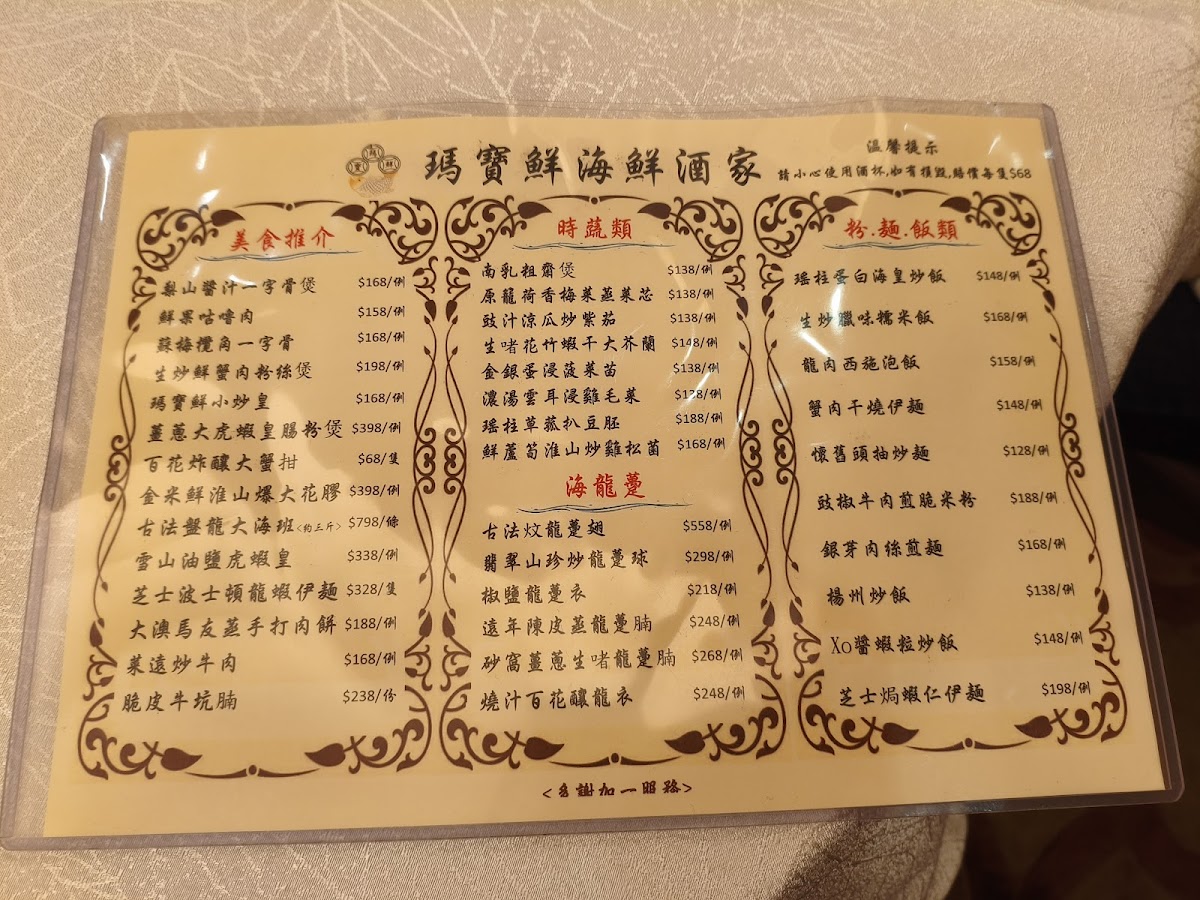 瑪寶鮮海鮮酒家
溫馨提示
請小心使用酒杯,如有損毀,賠償每隻$68
美食推介
梨山醬汁一字骨煲 $168/例
鮮果咕嚕肉 $158/例
蘇梅欖角一字骨 $168/例
生炒鮮蟹肉粉絲煲 $198/例
瑪寶鮮小炒皇 $168/例
薑蔥大虎蝦皇腸粉煲 $398/例
百花炸釀大蟹拑 $68/隻
金米鮮淮山爆大花膠 $398/例
古法盤龍大海班<約三斤> $798/條
雪山油鹽虎蝦皇 $338/例
芝士波士頓龍蝦伊麵 $328/隻
大澳馬友蒸手打肉餅 $188/例
菜遠炒牛肉 $168/例
脆皮牛坑腩 $238/份
時蔬類
南乳粗齋煲 $138/例
原籠荷香梅菜蒸菜芯 $138/例
豉汁涼瓜炒紫茄 $138/例
生啫花竹蝦干大芥蘭 $148/例
金銀蛋浸菠菜苗 $138/例
濃湯雲耳浸雞毛菜 $138/例
瑤柱草菰扒豆胚 $188/例
鮮蘆筍淮山炒雞松菌 $168/例
海龍躉
古法炆龍躉翅 $558/例
翡翠山珍炒龍躉球 $298/例
椒鹽龍躉衣 $218/例
遠年陳皮蒸龍躉腩 $248/例
砂窩薑蔥生啫龍躉腩 $268/例
燒汁百花釀龍衣 $248/例
粉.麵.飯類
瑤柱蛋白海皇炒飯 $148/例
生炒臘味糯米飯 $168/例
龍肉西施泡飯 $158/例
蟹肉干燒伊麵 $148/例
懷舊頭抽炒麵 $128/例
豉椒牛肉煎脆米粉 $188/例
銀芽肉絲煎麵 $168/例
楊州炒飯 $138/例
Xo醬蝦粒炒飯 $148/例
芝士焗蝦仁伊麵 $198/例
<多謝加一服務>